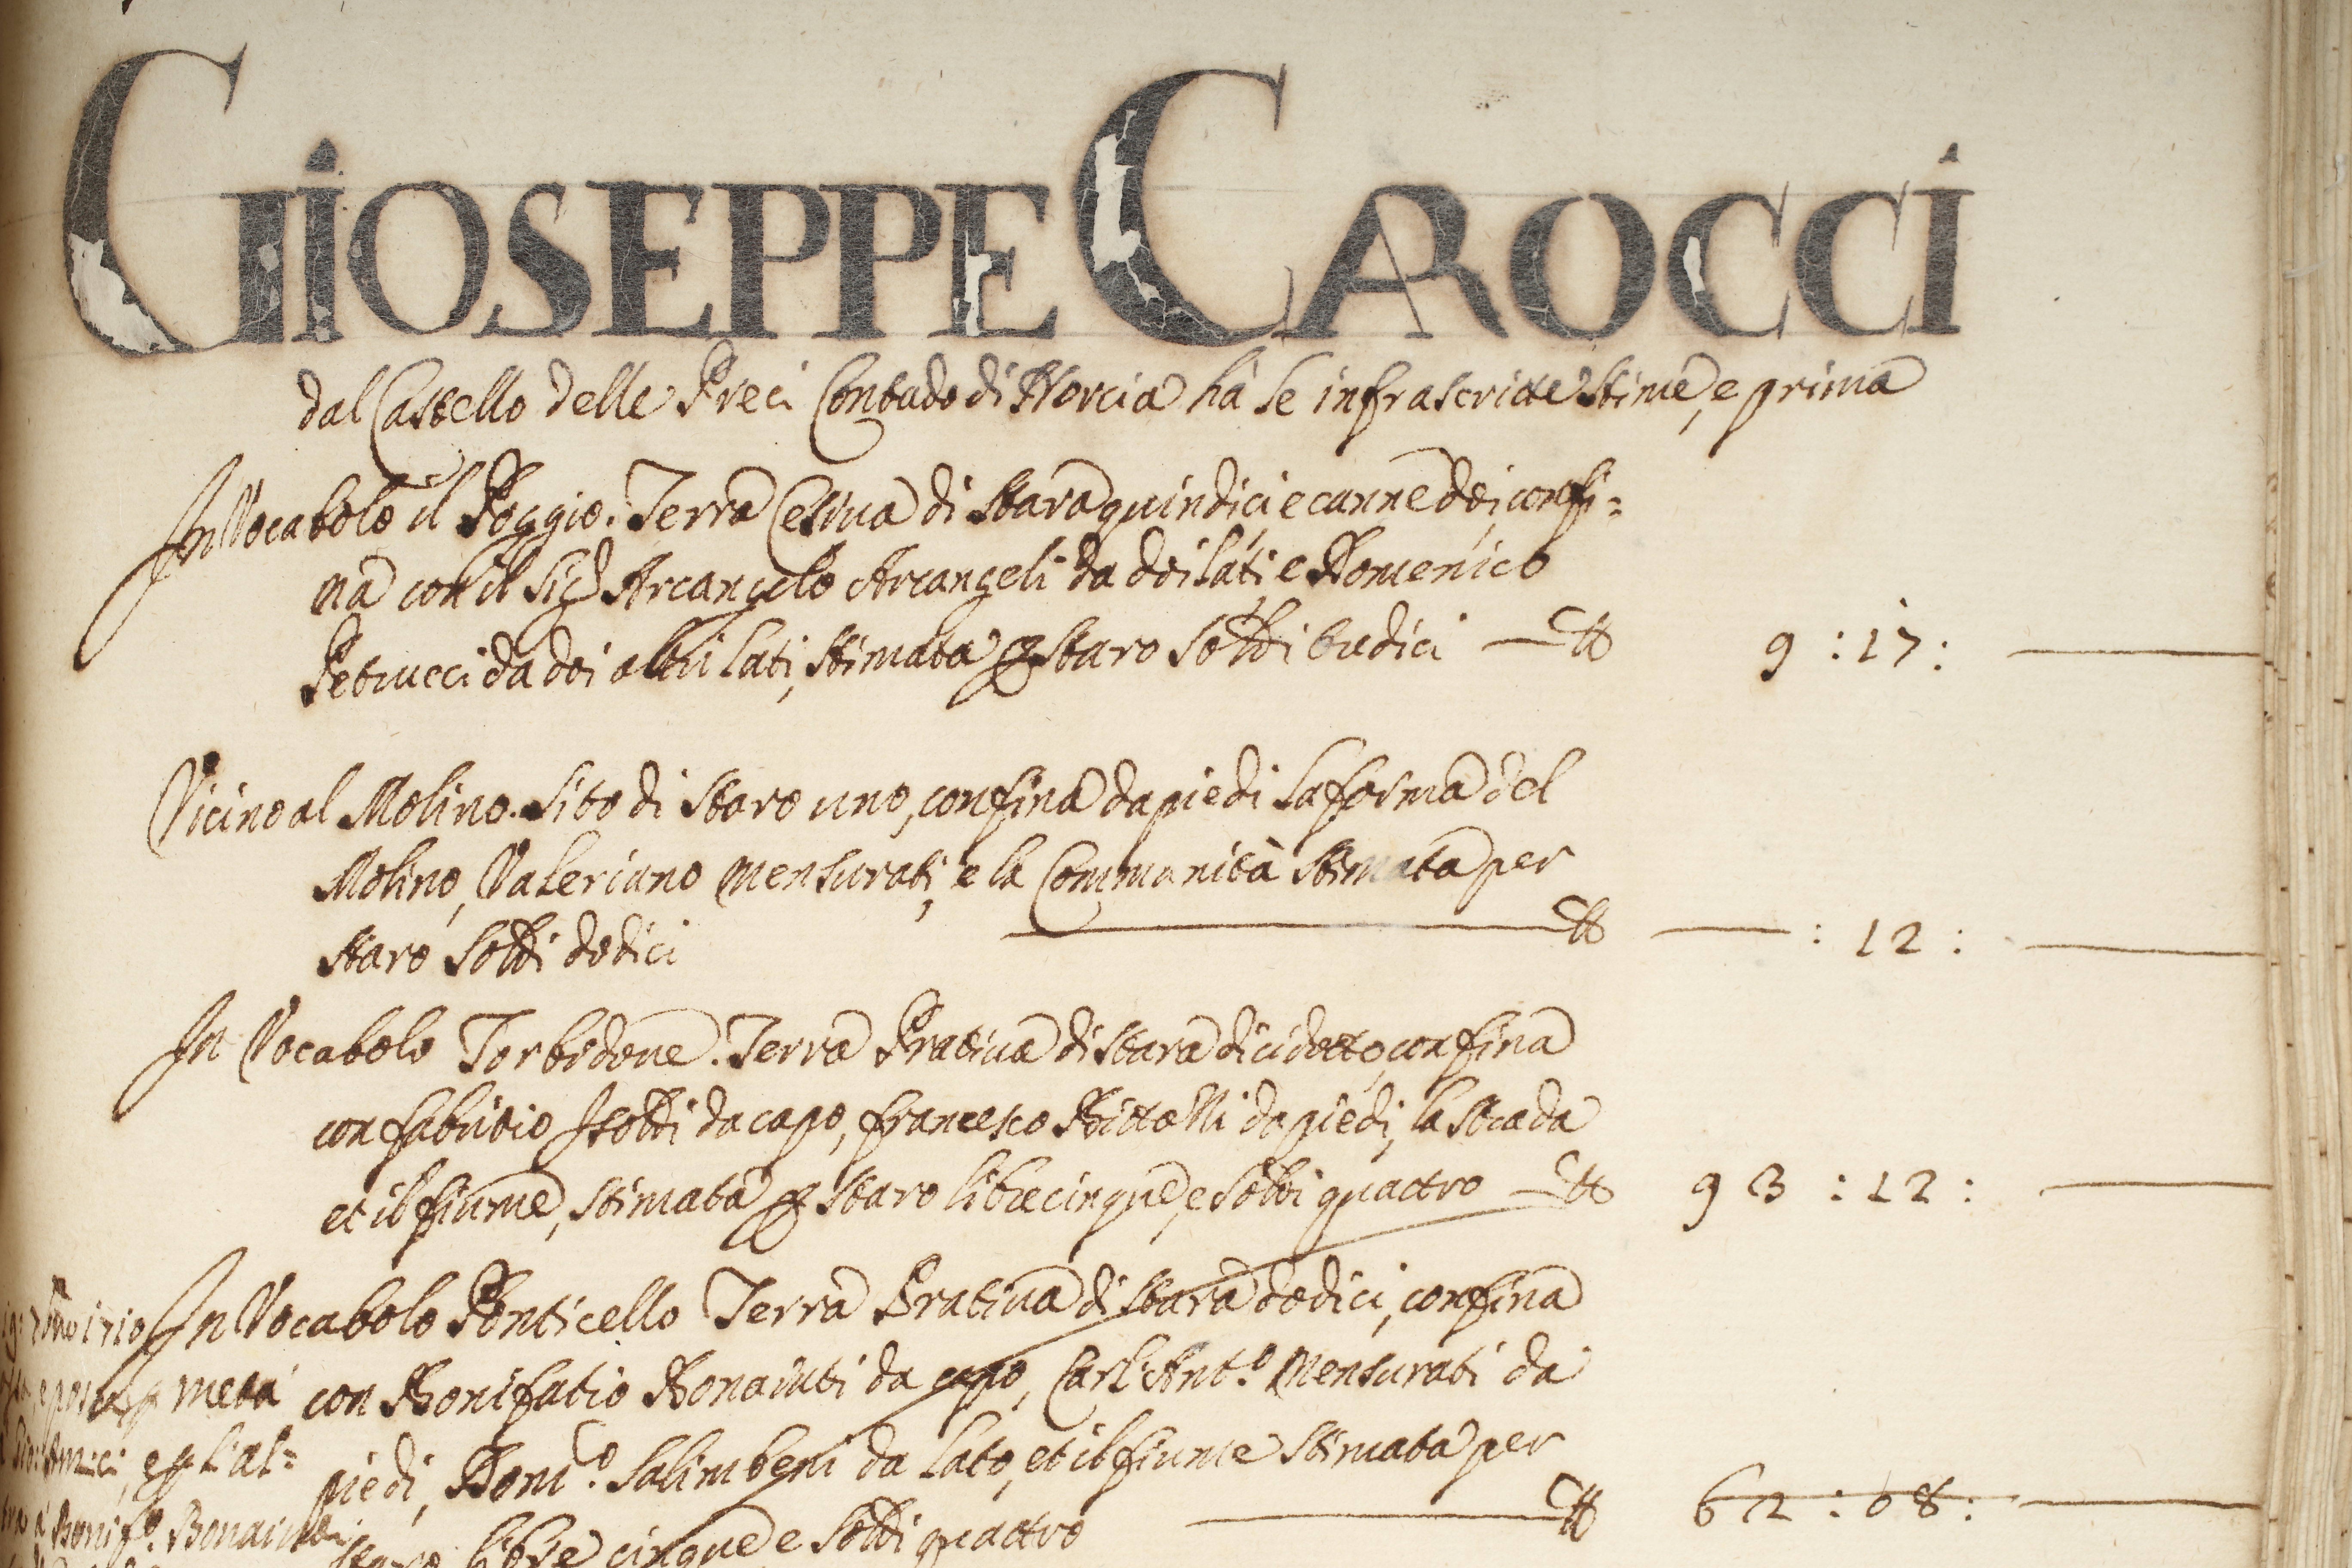 GIOSEPPE CAROCCI
dal Castello delle Preci Contado di Norcia hà le infrascritte stime, e prima
In Vocabolo il Poggio. Terra Cesiva di stara quindici e canne doi, confi=
na con il Sig.r Arcangelo Arcangeli da doi lati, e Domenico
Petrucci da doi altri lati, stimata p staro soldi tredici — ℔ 9 : 17 : —
Vicino al Molino. Sito di staro uno, confina da piedi la forma del
Molino, Valeriano Mensurati, e la Communità stimata per
staro soldi dodici — ℔ — : 12 : —
In Vocabolo Torbidone. Terra Prativa di stara dicidotto, confina
con fabritio Isotti da capo, francesco da piedi, la strada
et il fiume, stimata p staro libre cinque, e soldi quattro — ℔ 93 : 12 : —
In Vocabolo Ponticello Terra Prativa di stara dodici, confina
con Bonifatio Bonaiuti da capo, Carl'Ant.o Mensurati da
piedi, Dom.co Salimbeni da lato, et il fiume stimata per
staro libre cinque e soldi quattro — ℔ 62 : 08 : —
1710
p metà
Amici, e p l'al=
tra à Bonif.o Bonaiuti